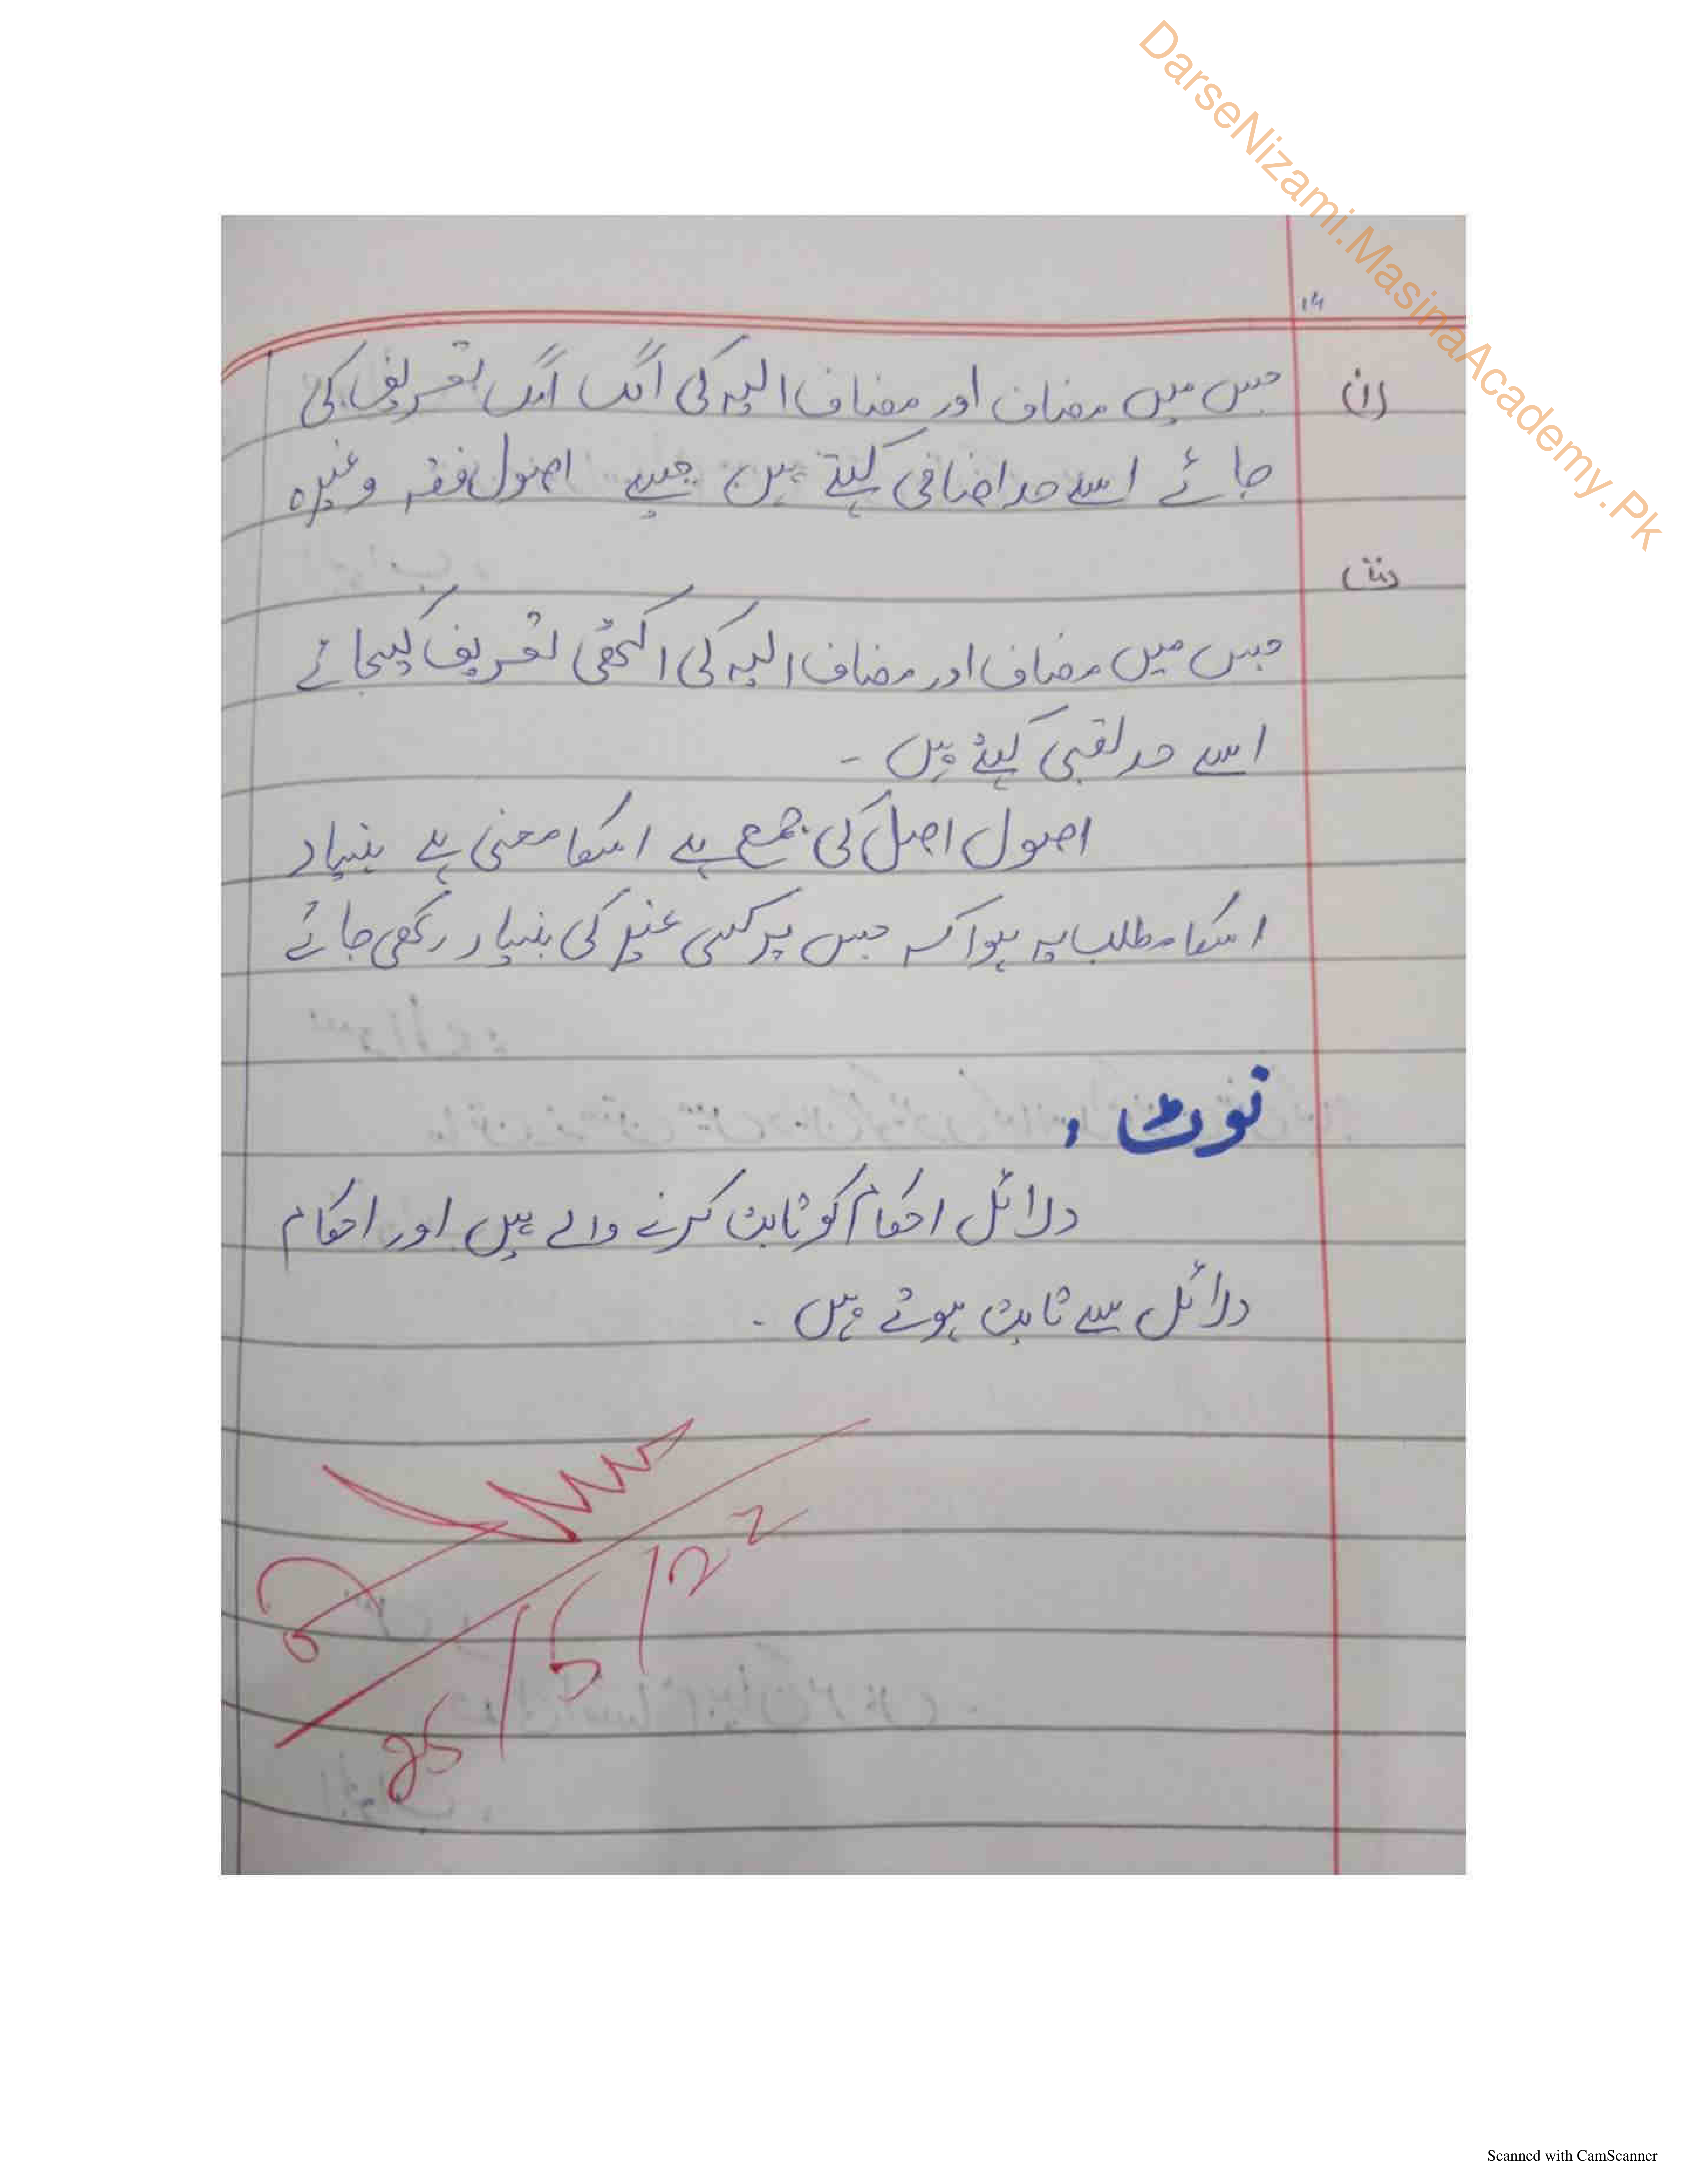 DarseNizami.MasinaAcademy.Pk
۱۴
(i) جس میں مضاف اور مضاف الیہ کی الگ الگ تعریف کی
جائے اسے حد اضافی کہتے ہیں جیسے اصول فقہ وغیرہ
(ii)
جس میں مضاف اور مضاف الیہ کی اکٹھی تعریف کیجائے
اسے حد لقبی کہتے ہیں -
اصول اصل کی جمع ہے اسکا معنی ہے بنیاد
اسکا مطلب یہ ہوا کہ جس پر کسی غیر کی بنیاد رکھی جائے
نوٹ :
دلائل احکام کو ثابت کرنے والے ہیں اور احکام
دلائل سے ثابت ہوتے ہیں -
25/5/22
Scanned with CamScanner